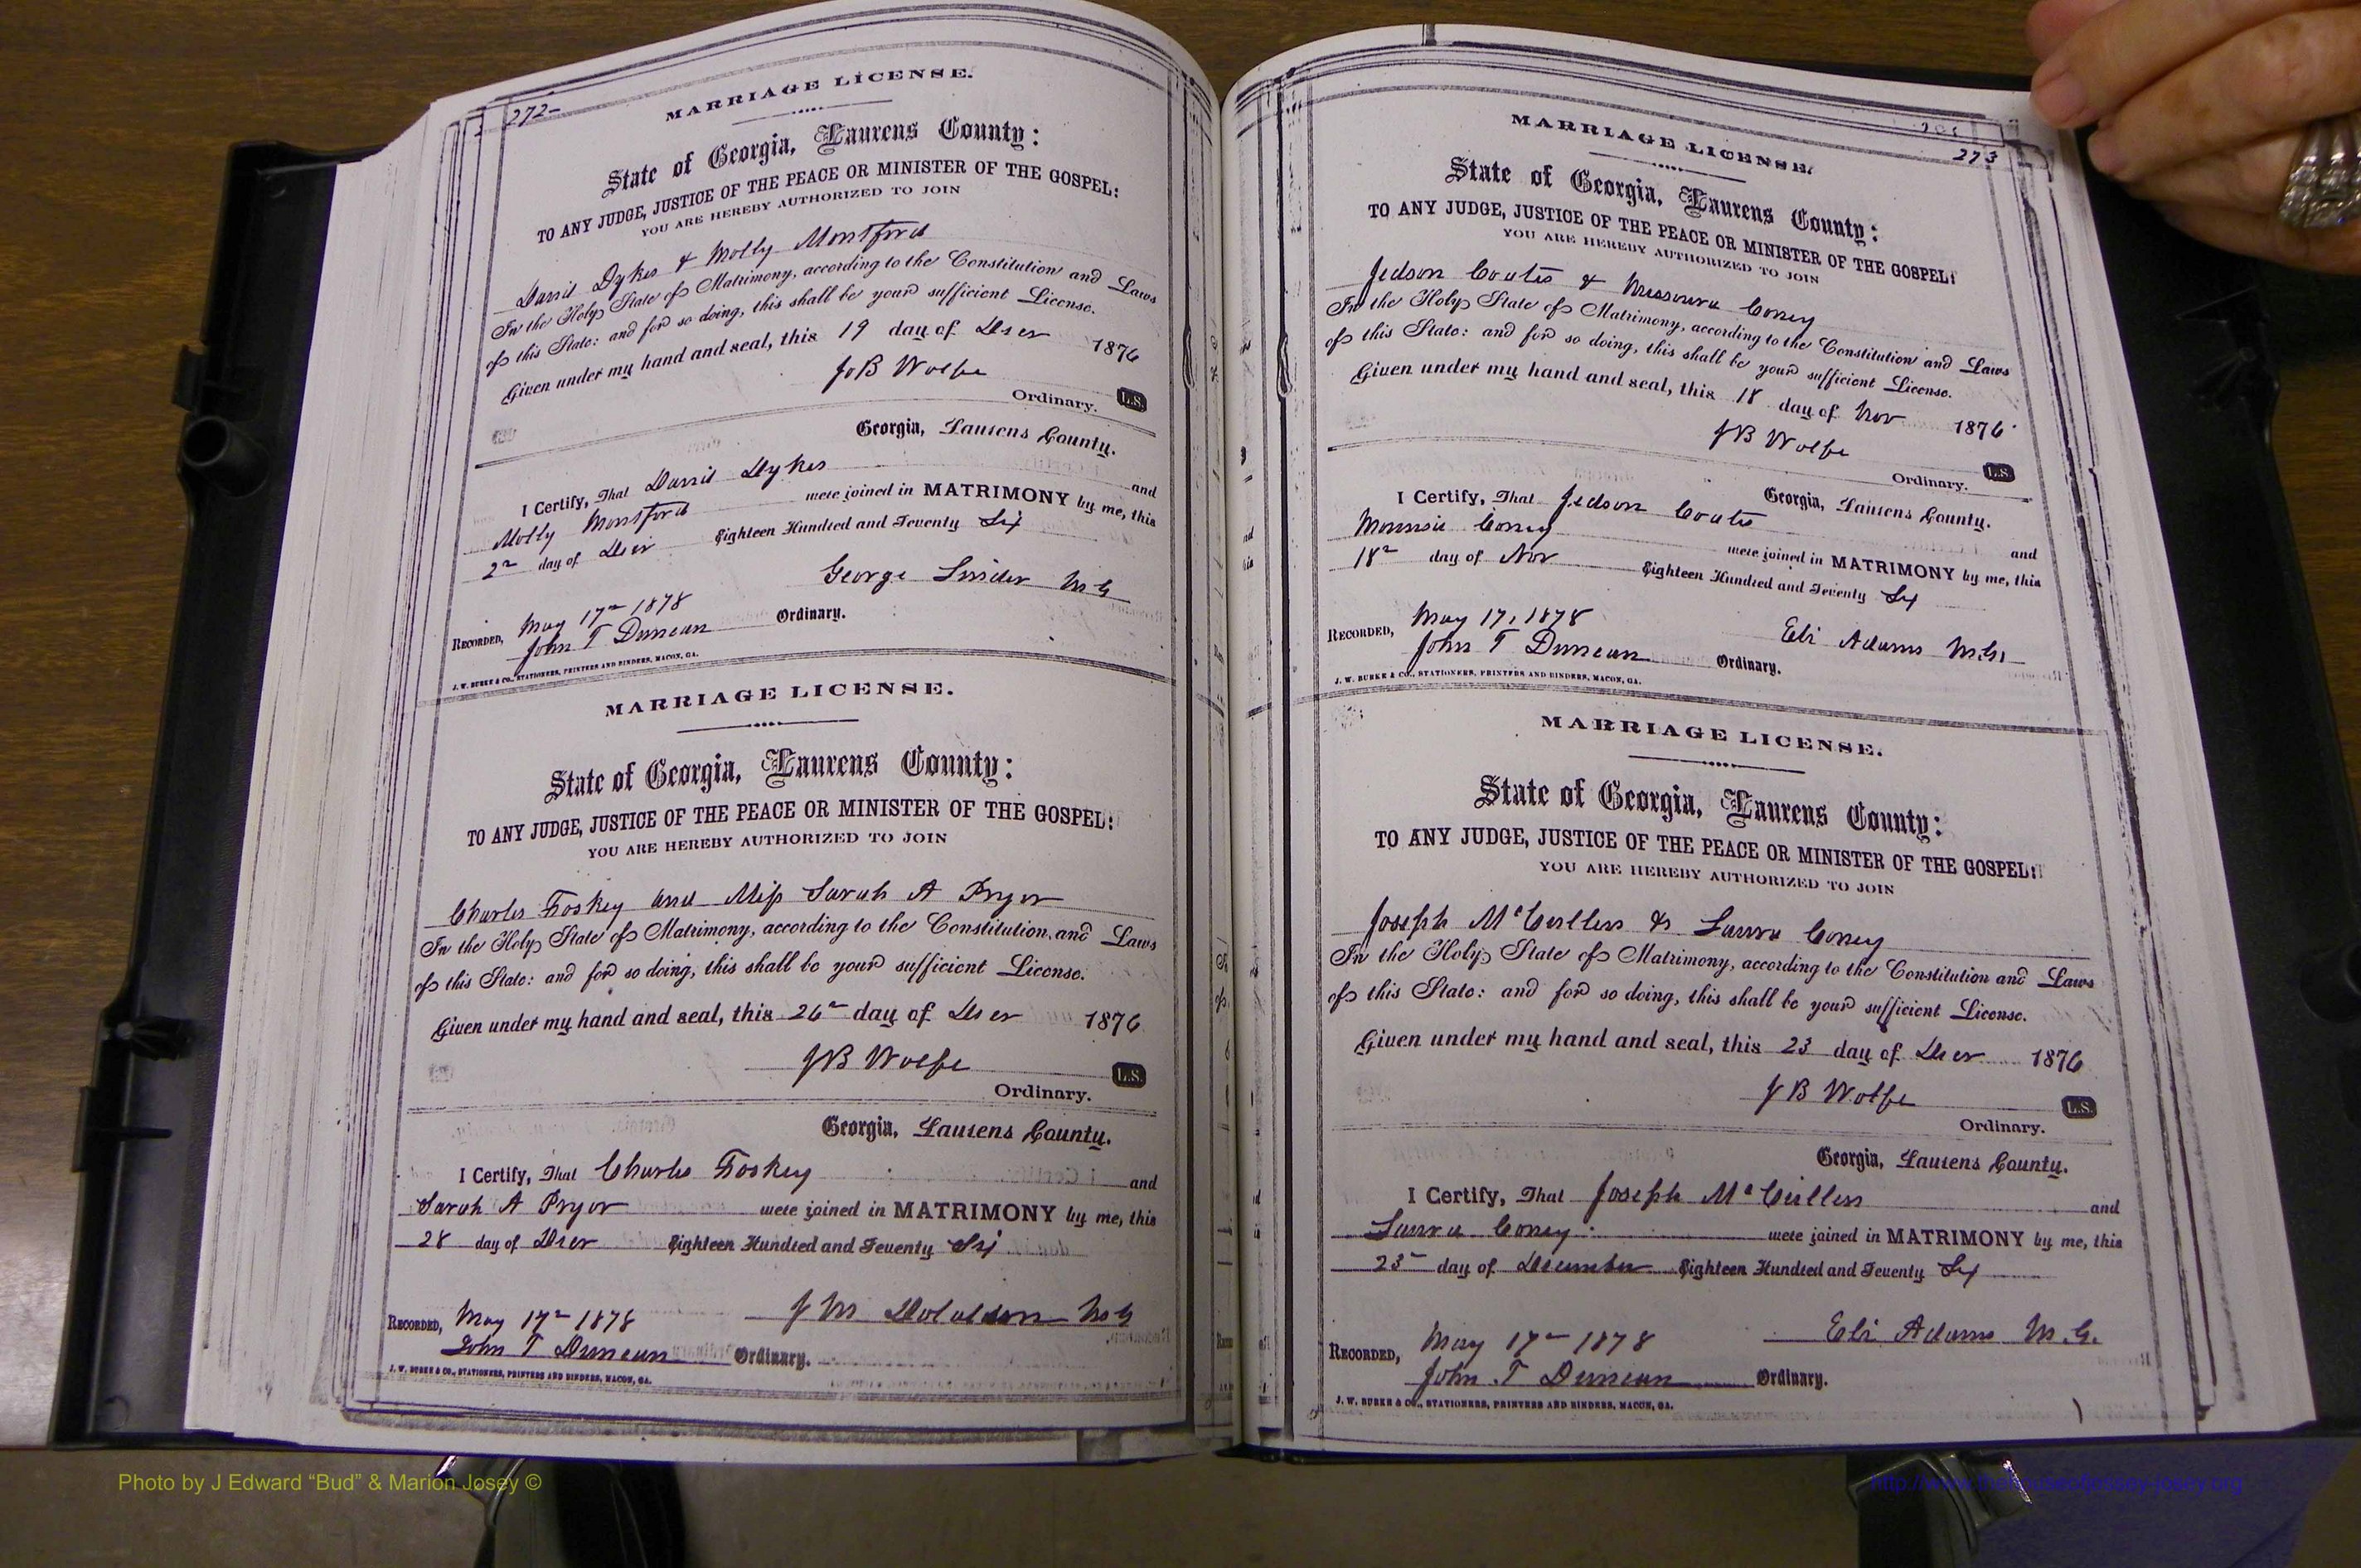 272-
MARRIAGE LICENSE.
State of Georgia, Laurens County:
TO ANY JUDGE, JUSTICE OF THE PEACE OR MINISTER OF THE GOSPEL:
YOU ARE HEREBY AUTHORIZED TO JOIN
Dykes & Molly Montford
In the Holy State of Matrimony, according to the Constitution and Laws
of this State: and for so doing, this shall be your sufficient License.
Given under my hand and seal, this 19 day of Decr 1876
JB Wolfe
Ordinary. L.S.
Georgia, Laurens County.
I Certify, That Dykes and
Molly Montford were joined in MATRIMONY by me, this
day of Decr Eighteen Hundred and Seventy Six
George Linder MG
RECORDED, May 17th 1878
John T Duncan Ordinary.
J. W. BURKE & CO., STATIONERS, PRINTERS AND BINDERS, MACON, GA.
MARRIAGE LICENSE.
State of Georgia, Laurens County:
TO ANY JUDGE, JUSTICE OF THE PEACE OR MINISTER OF THE GOSPEL:
YOU ARE HEREBY AUTHORIZED TO JOIN
Charles Foskey and Miss Sarah A Pryor
In the Holy State of Matrimony, according to the Constitution and Laws
of this State: and for so doing, this shall be your sufficient License.
Given under my hand and seal, this 26th day of Decr 1876
JB Wolfe
L.S.
Ordinary.
Georgia, Laurens County.
I Certify, That Charles Foskey and
Sarah A Pryor were joined in MATRIMONY by me, this
28 day of Decr Eighteen Hundred and Seventy Six
J M MG
RECORDED, May 17th 1878
John T Duncan Ordinary.
J. W. BURKE & CO., STATIONERS, PRINTERS AND BINDERS, MACON, GA.
273
MARRIAGE LICENSE.
State of Georgia, Laurens County:
TO ANY JUDGE, JUSTICE OF THE PEACE OR MINISTER OF THE GOSPEL:
YOU ARE HEREBY AUTHORIZED TO JOIN
Jedson Coats & Missoura Coney
In the Holy State of Matrimony, according to the Constitution and Laws
of this State: and for so doing, this shall be your sufficient License.
Given under my hand and seal, this 18 day of Nov 1876
JB Wolfe
Ordinary. L.S.
Georgia, Laurens County.
I Certify, That Jedson Coats and
Coney were joined in MATRIMONY by me, this
18th day of Nov Eighteen Hundred and Seventy Six
Eli Adams M.G.
RECORDED, May 17, 1878
John T Duncan Ordinary.
J. W. BURKE & CO., STATIONERS, PRINTERS AND BINDERS, MACON, GA.
MARRIAGE LICENSE.
State of Georgia, Laurens County:
TO ANY JUDGE, JUSTICE OF THE PEACE OR MINISTER OF THE GOSPEL:
YOU ARE HEREBY AUTHORIZED TO JOIN
Joseph McCullers & Laura Coney
In the Holy State of Matrimony, according to the Constitution and Laws
of this State: and for so doing, this shall be your sufficient License.
Given under my hand and seal, this 23 day of Decr 1876
JB Wolfe
L.S.
Ordinary.
Georgia, Laurens County.
I Certify, That Joseph McCullers and
Laura Coney were joined in MATRIMONY by me, this
23rd day of December Eighteen Hundred and Seventy Six
Eli Adams M.G.
RECORDED, May 17th 1878
John T Duncan Ordinary.
J. W. BURKE & CO., STATIONERS, PRINTERS AND BINDERS, MACON, GA.
Photo by J Edward “Bud” & Marion Josey ©
http://www.thehouseofjossey-josey.org